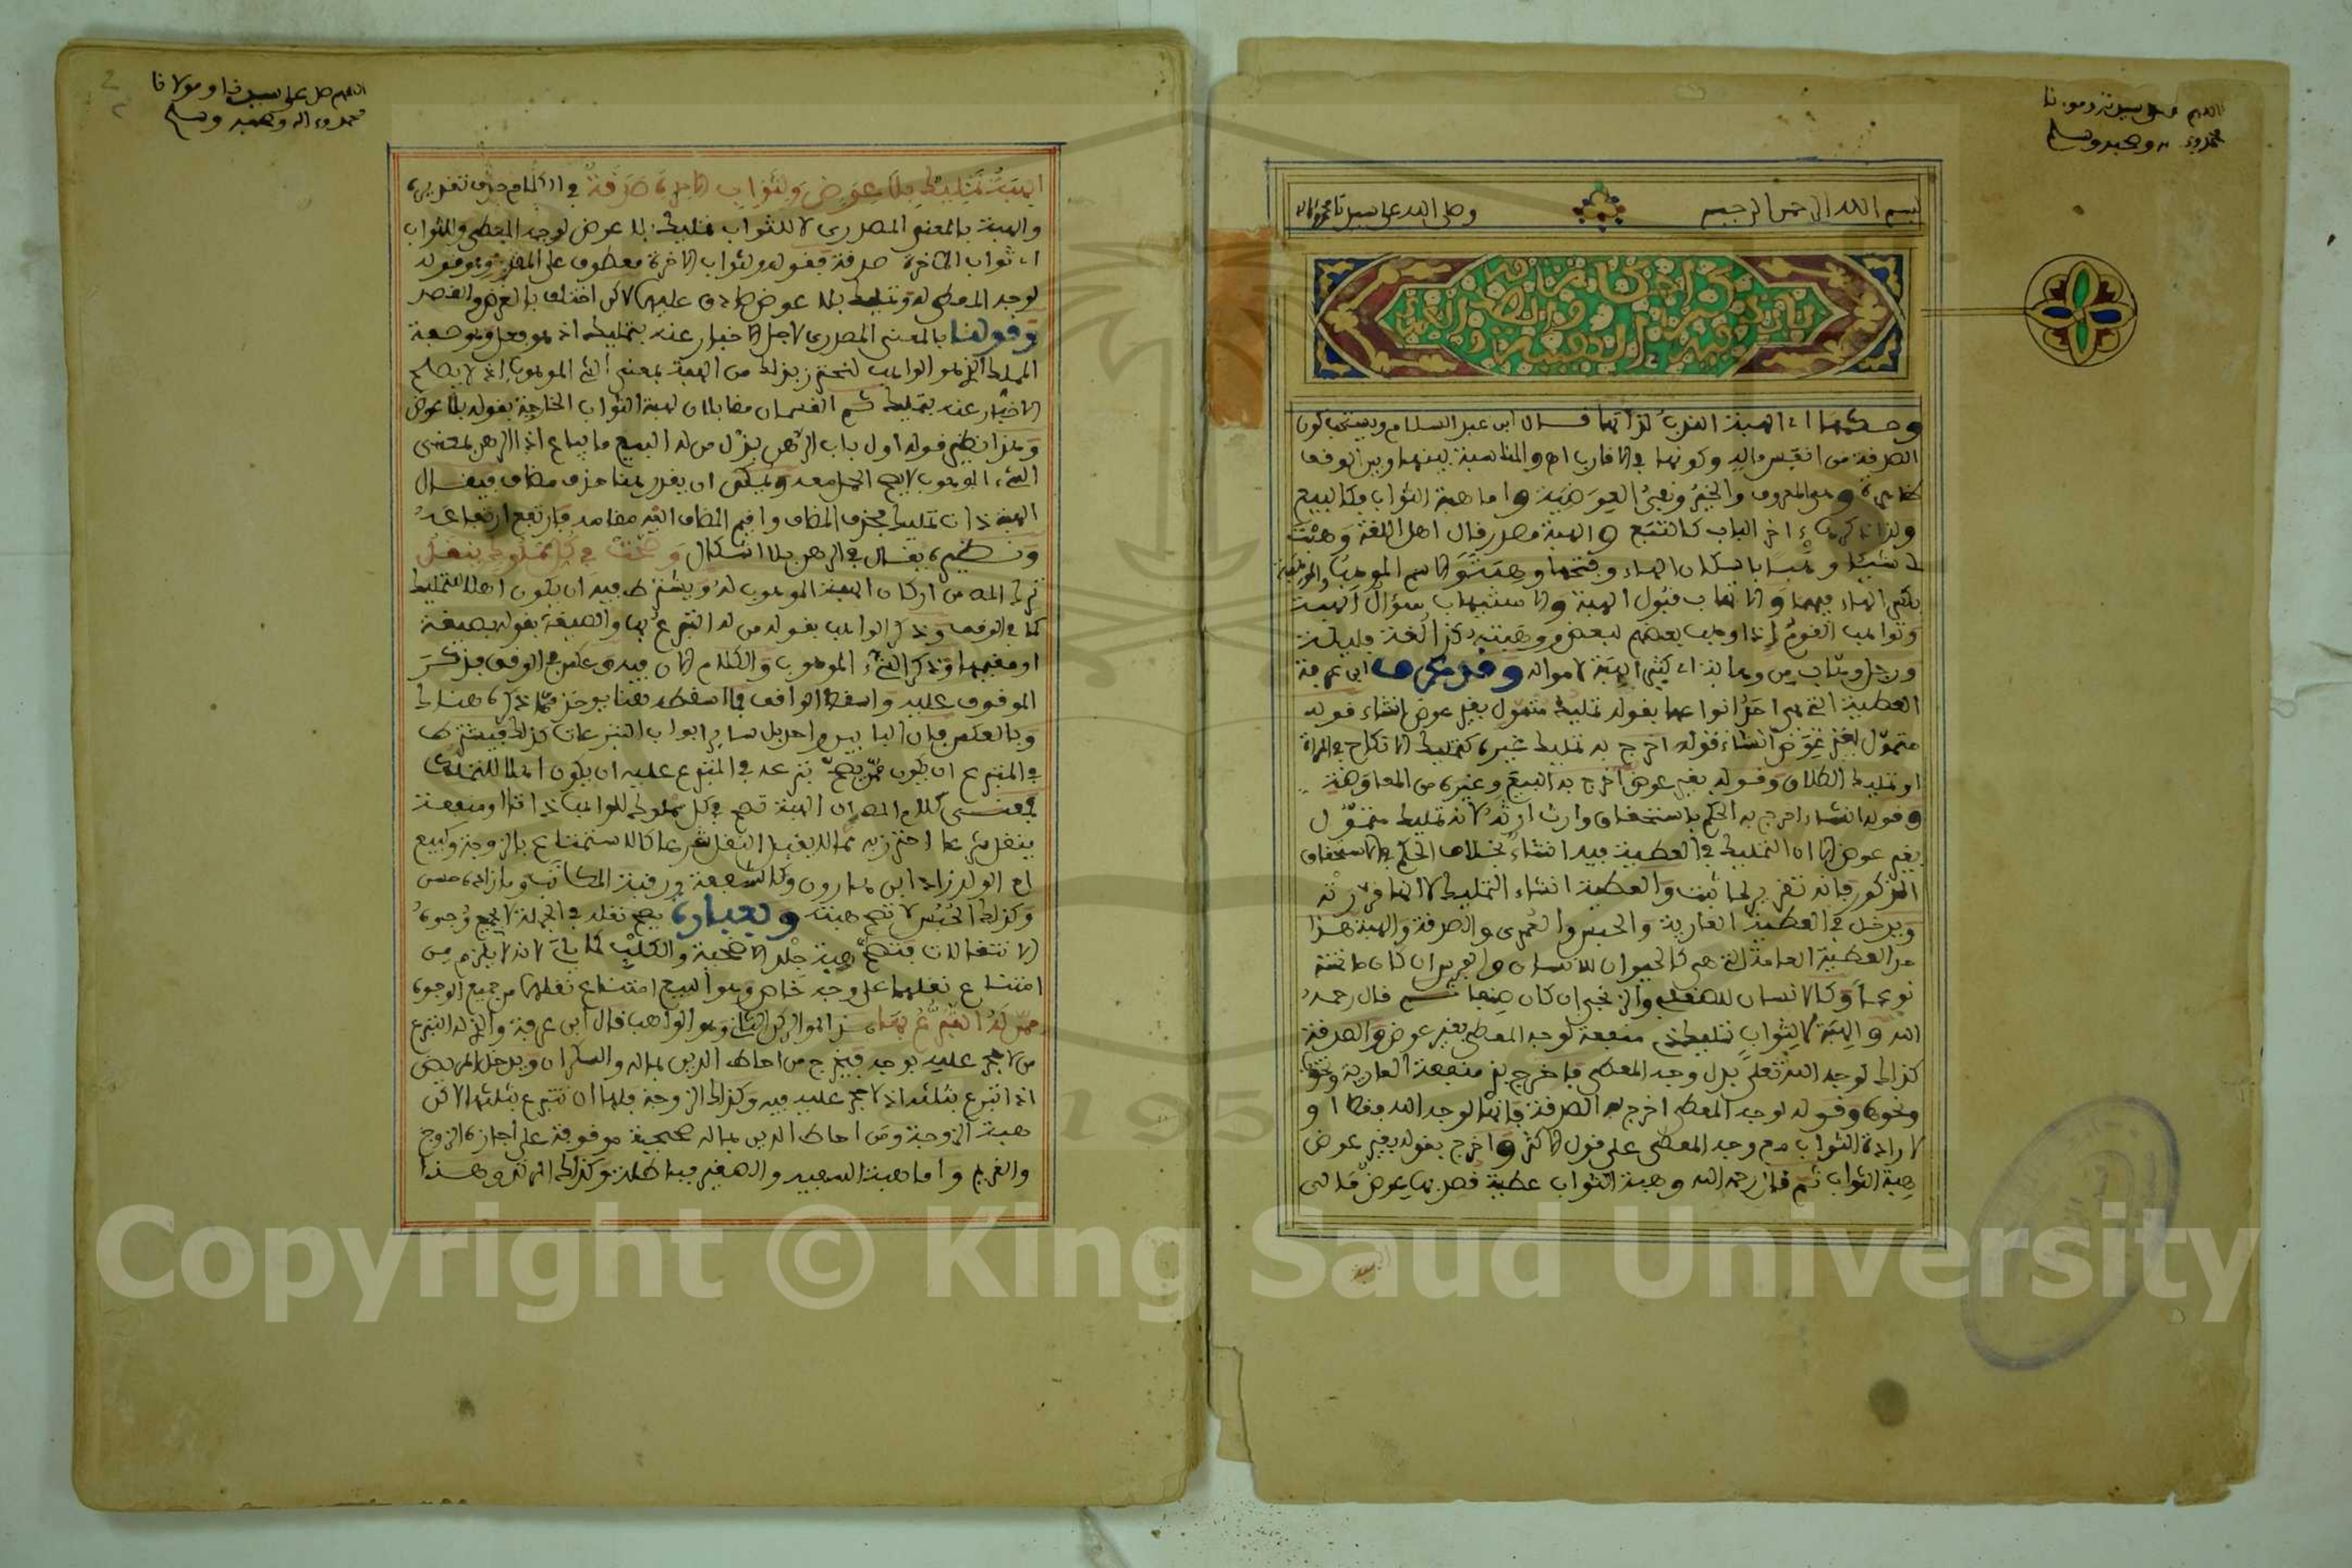 اللهم صل على سيدنا ومولانا
محمد وءاله وصحبه وسلم
بسم الله الرحمن الرحيم وصلى الله على سيدنا محمد وءاله
باب
وحكمها أي الهبة الندب لذاتها قال ابن عبد السلام ويستحب كون
الصدقة من أنفس ماله وكونها في الأقارب اه والمناسبة بينها وبين الوقف
ظاهرة وهي المعروف والخير ونفي العوضية وأما هبة الثواب فكالبيع
ولذا ذكرها ءاخر الباب كالتبع والهبة مصدر قال أهل اللغة وهبت
له شيئا وهبا بإسكان الهاء وفتحها وهبة والاسم الموهب والموهبة
بكسر الهاء فيهما والاتهاب قبول الهبة والاستيهاب سؤال الهبة
وتواهب القوم إذا وهب بعضهم لبعض ووهبته كذا لغة قليلة
ورجل وهاب ووهابة أي كثير الهبة لأمواله وقد عرف ابن عرفة
العطية التي هي أحد أنواعها بقوله تمليك متمول بغير عوض إنشاء قوله
متمول بغير عوض إنشاء فقوله أخرج به تمليك غيره كتمليك الإنكاح في المرأة
أو تمليك الطلاق وقوله بغير عوض أخرج به البيع وغيره من المعاوضة
وقوله إنشاء أخرج به الحكم باستحقاق وارث إرثه لأنه تمليك متمول
بغير عوض إلا أن التمليك في العطية فيه إنشاء بخلاف الحكم في الاستحقاق
المذكور فإنه تقرير لما ثبت والعطية إنشاء التمليك لا
ويدخل في العطية العارية والحبس والعمرى والصدقة والهبة هذا
حد العطية العامة التي هي كالحيوان للإنسان والفرس إن كان ما تحته
نوعا وكالإنسان للصقلي والزنجي إن كان صنفا ثم قال رحمه
الله والهبة لا لثواب تمليك ذي منفعة لوجه المعطى بغير عوض والصدقة
كذلك لوجه الله تعالى بدل وجه المعطى فأخرج بذي منفعة العارية ونحوها
ونحوها وقوله لوجه المعطى أخرج به الصدقة فإنها لوجه الله فقط أو
لإرادة الثواب مع وجه المعطى على قول الأكثر وأخرج بقوله بغير عوض
هبة الثواب ثم قال رحمه الله وهبة الثواب عطية قصد بها عوض مالي
اللهم صل على سيدنا ومولانا
محمد وءاله وصحبه وسلم
2
الهبة تمليك بلا عوض ولثواب الآخرة صدقة في الكلام حذف تقديره
والهبة بالمعنى المصدري لا للثواب تمليك بلا عوض لوجه المعطى وللثواب
أي ثواب الآخرة صدقة فقوله ولثواب الآخرة معطوف على المقدر وهو قوله
لوجه المعطى له وتمليك بلا عوض صادق عليهما لكن اختلف بالغرض والقصد
وقولنا بالمعنى المصدري لأجل الإخبار عنه بتمليك إذ هو فعل وهو صفة
المملك الذي هو الواهب لنحترز بذلك من الهبة بمعنى الشيء الموهوب إذ لا يصلح
الإخبار عنه بتمليك ثم القسمان مقابلان لهبة الثواب الخارجة بقوله بلا عوض
وهذا نظير قوله أول باب الرهن بذل من له البيع ما يباع إذ الرهن بمعنى
الشيء الموهوب لا يصح الحمل معه ويمكن أن يقدر هنا حذف مضاف فيقال
الهبة ذات تمليك فحذف المضاف وأقيم المضاف إليه مقامه فارتفع ارتفاعه
ونظيره يقال في الرهن بلا إشكال وصحت في كل مملوك ينقل
ترك المص من أركان الهبة الموهوب له ويشترط فيه أن يكون أهلا للتمليك
كما في الوقف وذكر الواهب بقوله ممن له التبرع بها والصيغة بقوله بصيغة
أو مفهمها وذكر الشيء الموهوب والكلام الآن فيه وعكس في الوقف فذكر
الموقوف عليه وأسقط الواقف فما أسقطه هنا يؤخذ مما ذكره هناك
وبالعكس فإن البابين واحد بل سائر أبواب التبرعات كذلك فيشترط
في المتبرع أن يكون ممن يصح تبرعه في المتبرع عليه أن يكون أهلا للتملك
فمعنى كلام المص أن الهبة تصح في كل مملوك للواهب ذاتا أو منفعة
ينقل شرعا احترز به مما لا يقبل النقل شرعا كالاستمتاع بالزوجة وكبيع
أم الولد زاد ابن هارون وكالشفعة ورقبة المكاتب وما زاده حسن
وكذلك الحبس لا تصح هبته وبعبارة يصح نقله في الجملة لا بجميع وجوه
الانتقالات فتصح هبة جلد الأضحية والكلب كما يأتي لأنه لا يلزم من
امتناع نقلهما على وجه خاص وهو البيع امتناع نقلهما من جميع الوجوه
ممن له التبرع بها هذا هو الركن الثاني وهو الواهب قال ابن عرفة والذي له التبرع
من لا حجر عليه بوجه فيخرج من أحاط الدين بماله والسكران ويدخل المريض
إذا تبرع بثلثه إذ لا حجر عليه فيه وكذلك الزوجة فلها أن تتبرع بثلثها لكن
هبة الزوجة ومن أحاط الدين بماله صحيحة موقوفة على إجازة الزوج
والغريم وأما هبة السفيه والصغير فباطلة وكذلك المرتد وهذا
Copyright © King Saud University